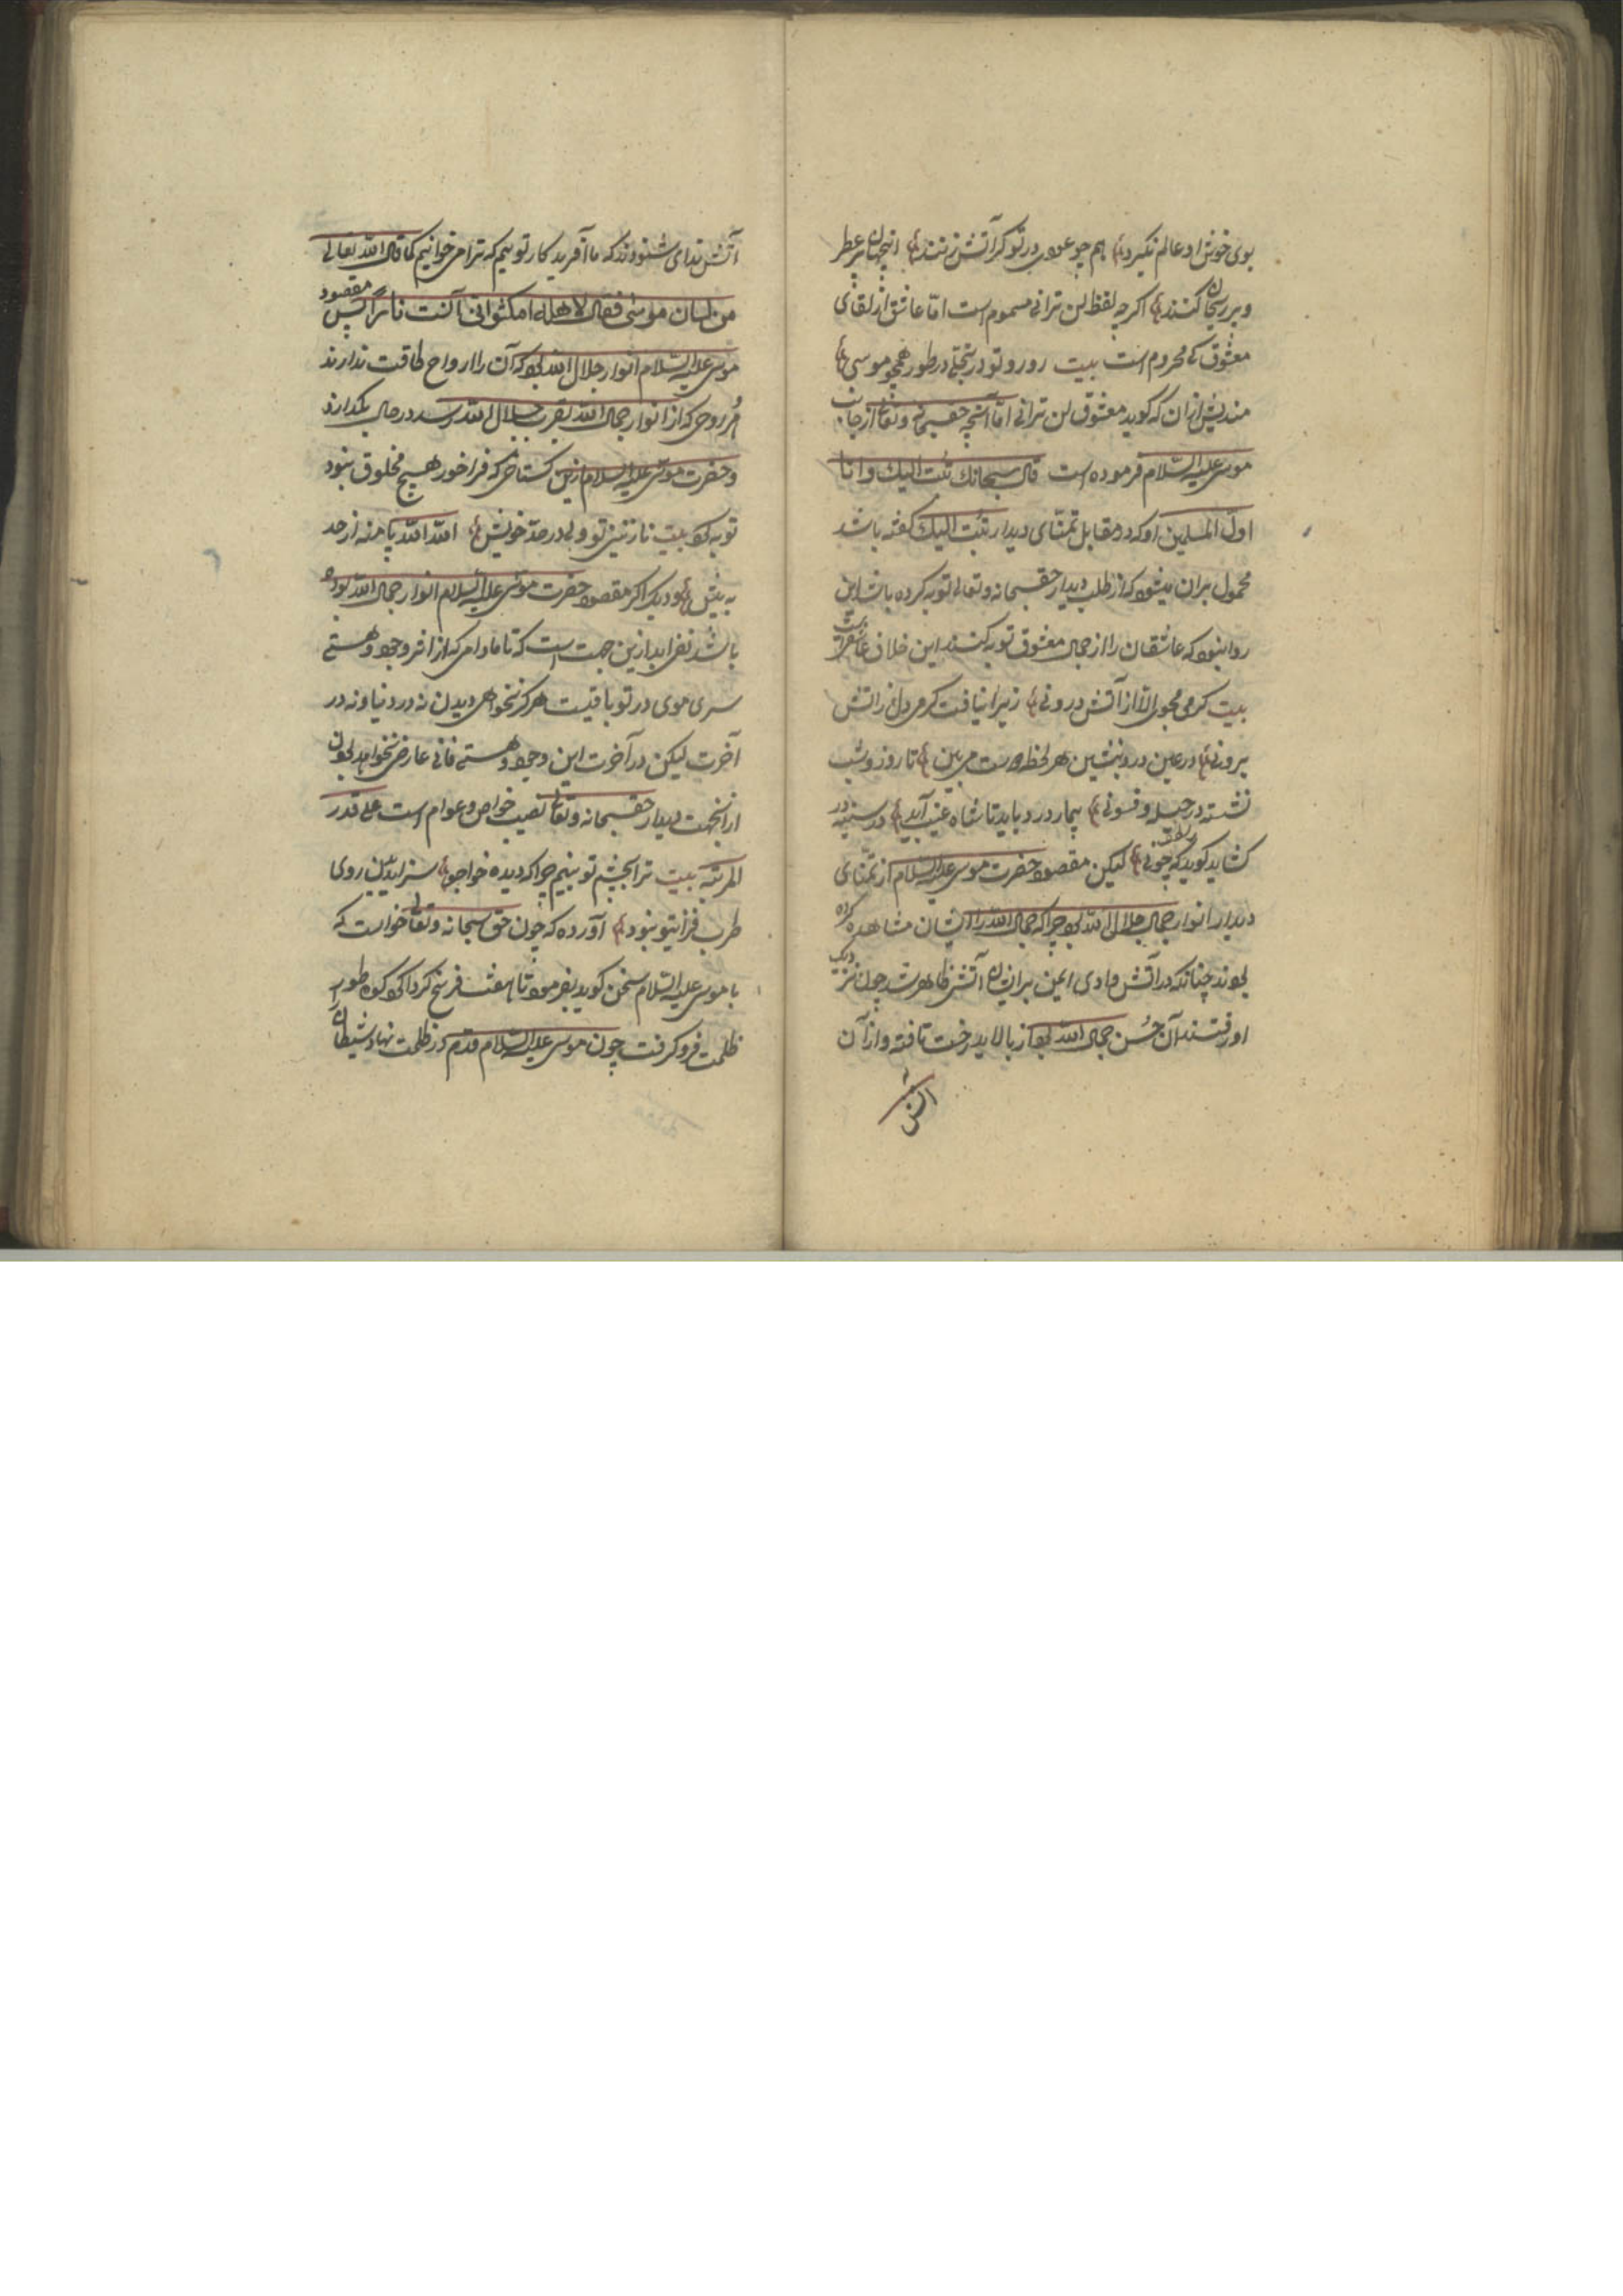 بوی خوش او عالم نکیرد هم چو عود در تو کر آتش نزنند اینجهان پر عطر
و پر ریحان کنند اکر چه لفظ لن ترانی مسموم است امّا عاشق از لقای
معشوق کی محروم است بیت رو رو تو در تجلّی در طور همچو موسی
مندیش از ان که کوید معشوق لن ترانی امّا آنچه حقسبحانه و تعالی از جانب
موسی علیه السّلام فرموده است قال سبحانک تبت الیک و انا
اوّل المسلمین او که در مقابل تمنّای دیدار تبت الیک کفته باشد
محمول بران میشود که از طلب دیدار حقسبحانه و تعالی توبه کرده باشد این
روا نبود که عاشقان را از جمال معشوق توبه کنند این خلاف عاشقیست
بیت کرمی مجوی الّا از آتش درونی زیرا نیافت کرمی دل ز آتش
برونی در عین درد بنشین هر لحظه دوست می بین تا روز و شب
نشسته در حیله و فسونی بیمار درد باید تا شاه غیب آید در سینه در
کشاید کوید بلطف که چونی لیکن مقصود حضرت موسی علیه السّلام از تمنّای
دیدار انوار جمال جلال الله بود چرا که جمال الله را ایشان مشاهده کرده
بودند چنانکه در آتش وادی ایمن بر ایشان آتش ظاهر شد چون نزدیک
او رفتند آن حُسن جمال الله بود از بالای درخت تافته و از آن
آتش
آتش ندای شنودند که ما آفرید کار توییم که ترا می خوانیم کما قال الله تعالی
من لسان موسی فقال لاهله امکثوا انی آنست نارا پس مقصود
موسی علیه السّلام انوار جلال الله بود که آن را ارواح طاقت ندارند
هر روحی که از انوار جمال الله بقرب جلال الله رسد در حال بکدازد
و حضرت موسی علیه السلام ازین کستاخی که فراخور هیچ مخلوق نبود
توبه کرد بیت نازنینی تو ولی در حدّ خویش الله الله پا منه از حد
به پیش و دیکر اکر مقصود حضرت موسی علیه السلام انوار جمال الله بوده
باشد نفی ابد ازین جهت است که تا مادامی که از اثر وجود و هستی
سری موی در تو باقیست هرکز نخواهی دیدن نه در دنیا و نه در
آخرت لیکن در آخرت این وجود و هستی فانی عارضی نخواهد بودن
ازانجهت دیدار حقسبحانه و تعالی نصیب خواص و عوام است علی قدر
المرتبه بیت ترا بچشم تو بینم چرا که دیده خواجو سزای دیدن روی
طرب فزای تو نبود آورده که چون حق سبحانه و تعالی خواست که
با موسی علیه السّلام سخن کوید بفرمود تا هفت فرسخ کرداکرد کوه طور را
ظلمت فرو کرفت چون موسی علیه السّلام قدم در ظلمت نهاد شیطان